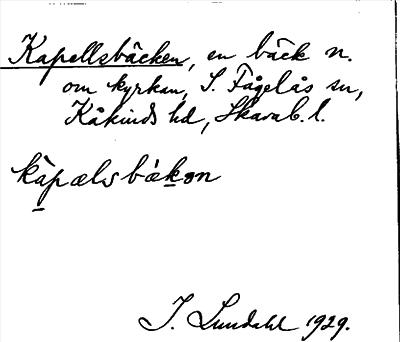 Kapellsbäcken, en bäck n.
om kyrkan, S. Fågelås sn,
Kåkinds hd, Skarab. l.
kapælsbækən
I. Lundahl 1929.